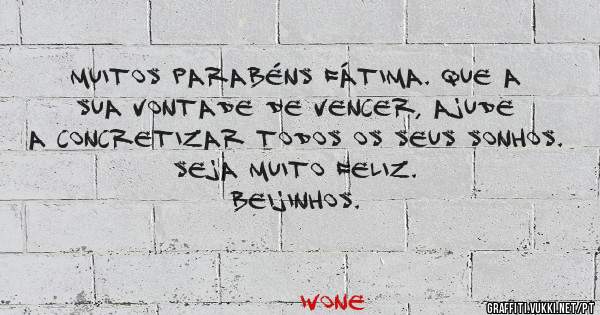 MUITOS PARABÉNS FÁTIMA. QUE A
SUA VONTADE DE VENCER, AJUDE
A CONCRETIZAR TODOS OS SEUS SONHOS.
SEJA MUITO FELIZ.
BEIJINHOS.
WONE
GRAFFITI.YUKKI.NET/PT